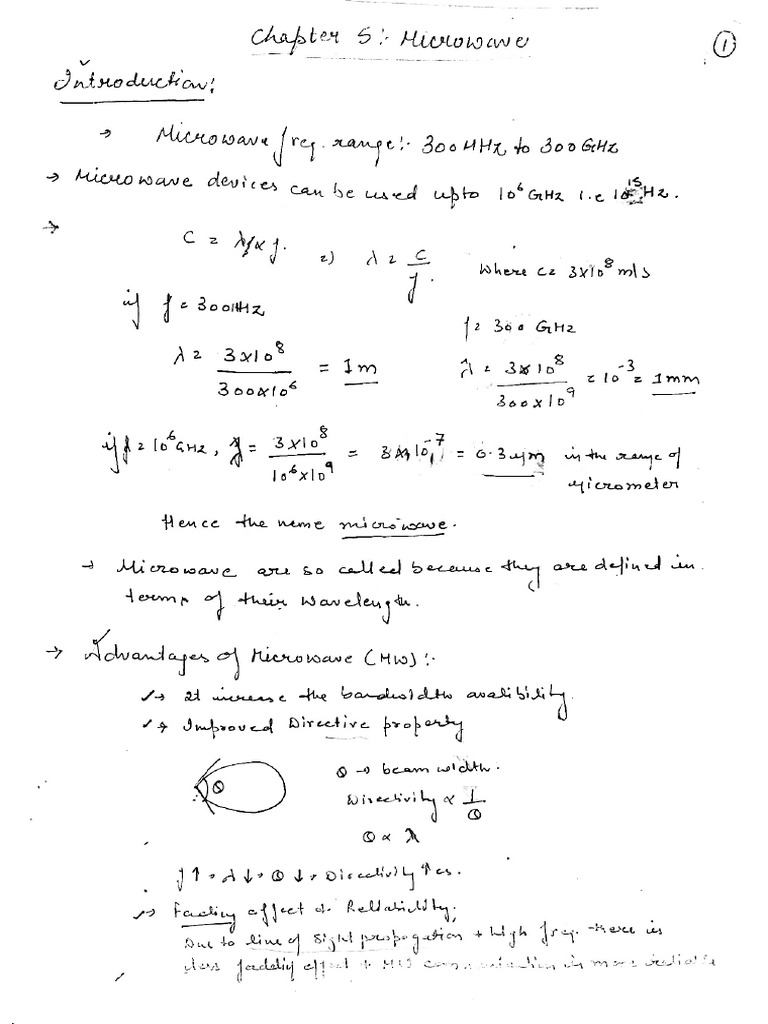 Chapter 5:- Microwave
1
Introduction:
→ Microwave freq. range:- 300 MHz to 300 GHz
→ Microwave devices can be used upto 10⁶ GHz i.e 10¹⁵ Hz.
→ C = λ × f. ⇒ λ = C/f. where c = 3×10⁸ m/s
if f = 300 MHz f = 300 GHz
λ = 3×10⁸/300×10⁶ = 1m λ = 3×10⁸/300×10⁹ = 10⁻³ = 1mm
if f = 10⁶ GHz, = 3×10⁸/10⁶×10⁹ = 3×10⁻⁷ = 0.3 μm in the range of
micrometer
Hence the name microwave.
→ Microwave are so called because they are defined in
terms of their wavelength.
→ Advantages of Microwave (MW):-
→ It increase the bandwidth avalibility.
→ Improved Directive property
θ θ → beam width.
Directivity ∝ 1/θ
θ ∝ λ
f↑ λ↓ θ↓ Directivity ↑es.
→ Fading effect & Reliability.
Due to line of sight propogation + high freq. there is
less fadding effect + MW communication is more reliable